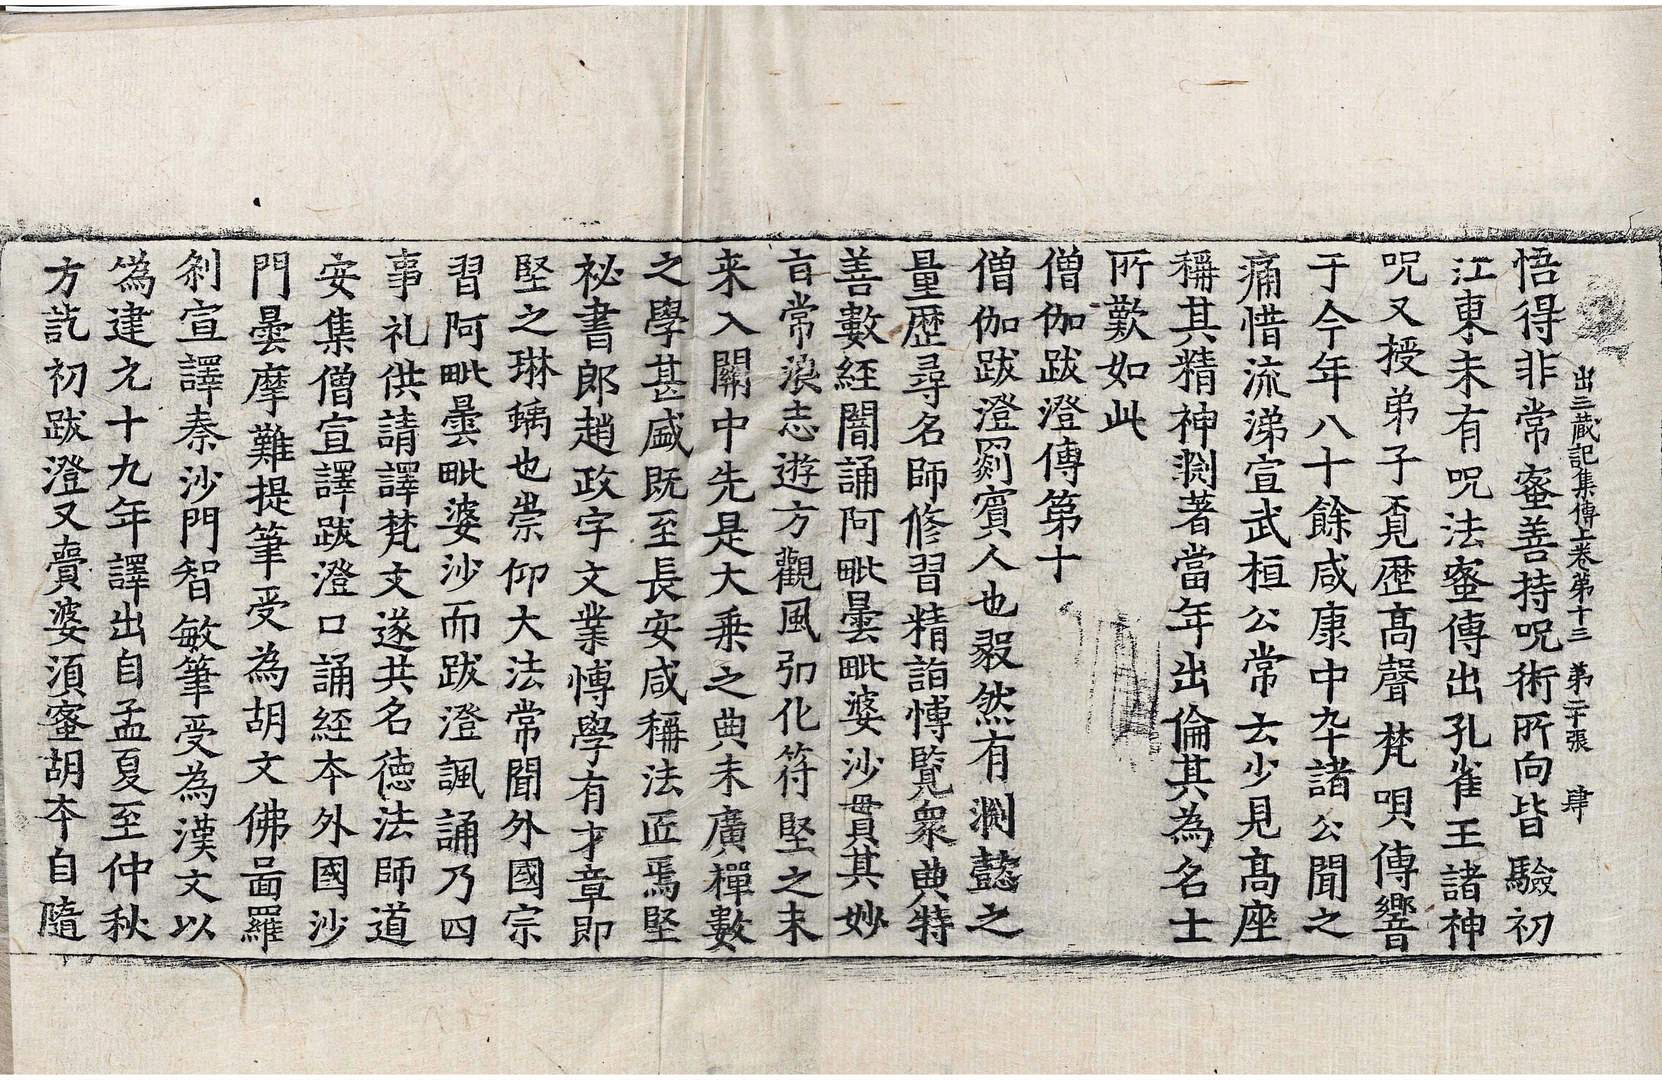 出三蔵記集傳上卷第十三 第二十張 肆
悟得非常蜜善持呪術所向皆驗初
江東未有呪法蜜傳出孔雀王諸神
呪又授弟子覔歷髙聲梵唄傳響
于今年八十餘咸康中卒諸公聞之
痛惜流涕宣武桓公常云少見髙座
稱其精神渕著當年出倫其為名士
所歎如此
僧伽跋澄傳第十
僧伽跋澄罽賓人也毅然有渕懿之
量歴尋名師修習精詣愽覧衆典特
善數經闇誦阿毗曇毗婆沙貫其妙
㫖常浪志遊方觀風弘化符堅之末
来入關中先是大乗之典未廣禪數
之學甚盛既至長安咸稱法匠焉堅
祕書郎趙政字文業愽學有才章即
堅之琳瑀也崇仰大法常聞外國宗
習阿毗曇毗婆沙而跋澄諷誦乃四
事礼供請譯梵文遂共名徳法師道
安集僧宣譯跋澄口誦經夲外國沙
門曇摩難提筆受為胡文佛啚羅
剎宣譯秦沙門智敏筆受為漢文以
偽建元十九年譯出自孟夏至仲秋
方訖初跋澄又賷婆湏蜜胡夲自隨